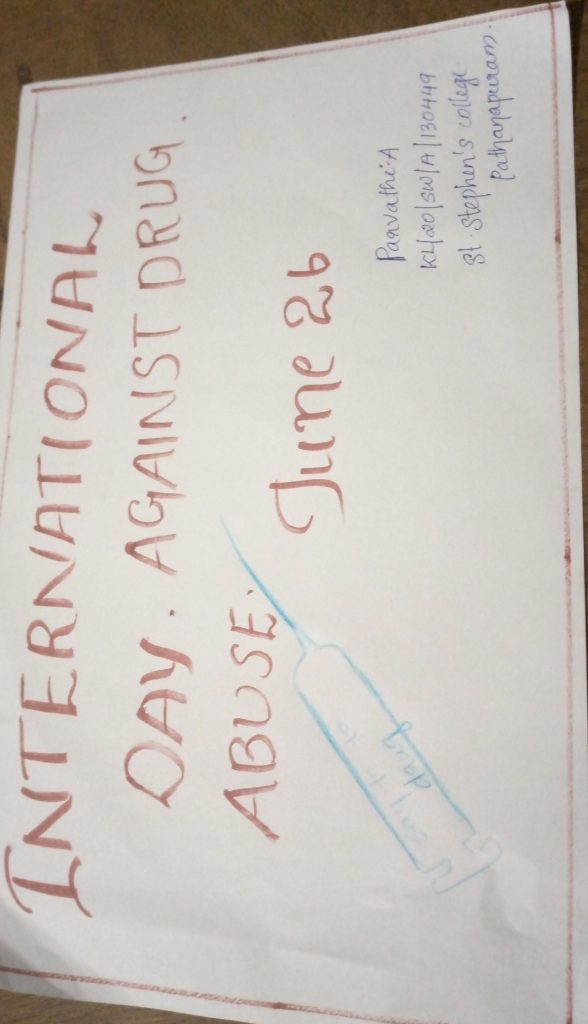 INTERNATIONAL
DAY. AGAINST DRUG.
ABUSE.
June 26
say
drug
Parvathi.A
KL/20/SW/A/130449
St. Stephen's college
Pathanapuram.